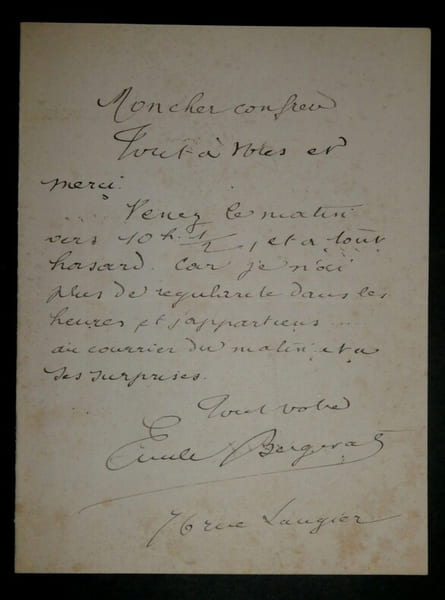 Mon cher confrère
Tout à vous et
merci.
Venez le matin
vers 10 h. 1/2, et à tout
hasard. Car je n'ai
plus de régularité dans les
heures et j'appartiens ...
au courrier du matin et a
ses surprises.
Tout votre
Emile Bergerat
76 rue Laugier